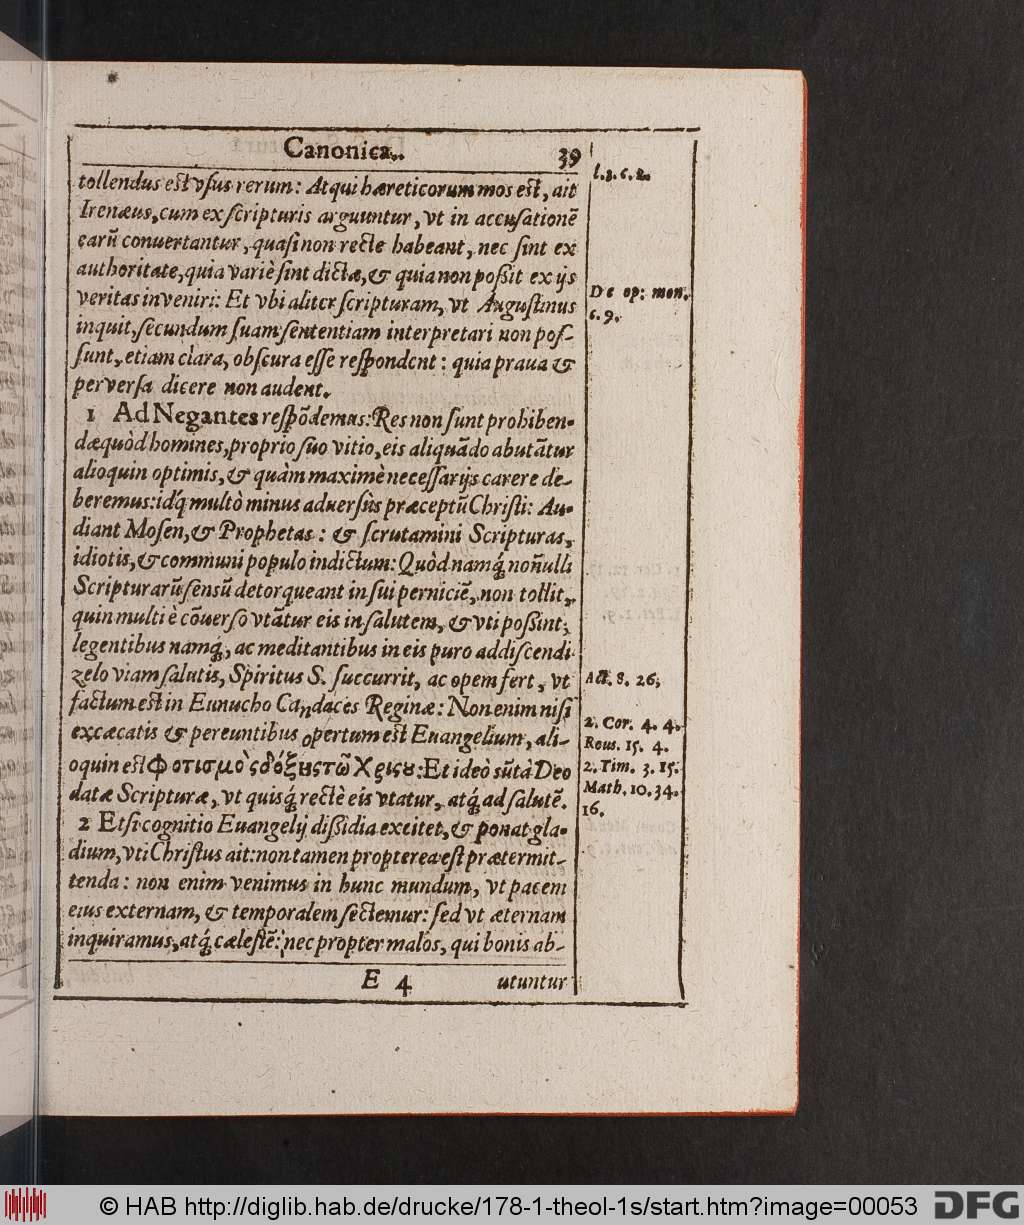 Canonica.. 39
tollendus est vsus rerum: Atqui hæreticorum mos est, ait
Irenæus, cum ex scripturis arguuntur, vt in accusationē
earū conuertantur, quasi non recte habeant, nec sint ex
authoritate, quia variè sint dictæ, & quia non poßit ex ijs
veritas inveniri: Et vbi aliter scripturam, vt Augustinus
inquit, secundum suam sententiam interpretari non pos-
sunt, etiam clara, obscura esse respondent: quia praua &
perversa dicere non audent.
1 Ad Negantes respōdemus: Res non sunt prohiben-
dæ quòd homines, proprio suo vitio, eis aliquādo abutātur
alioquin optimis, & quàm maximè necessarijs carere de-
beremus: idq́ multò minus adversùs præceptū Christi: Au-
diant Mosen, & Prophetas: & scrutamini Scripturas,
idiotis, & communi populo indictum: Quòd namq́ noñulli
Scripturarū sensū detorqueant in sui perniciē, non tollit,
quin multi è cōuerso vtātur eis in salutem, & vti possint;
legentibus namq́, ac meditantibus in eis puro addiscendi
zelo viam salutis, Spiritus S. succurrit, ac opem fert, vt
factum est in Eunucho Candaces Reginæ: Non enim nisi
excæcatis & pereuntibus opertum est Euangelium, ali-
oquin est Φοτισμὸς δόξης τῶ Χριςου: Et ideò sūt à Deo
datæ Scripturæ, vt quisq́ rectè eis vtatur, atq́ ad salutē.
2 Etsi cognitio Euangelij dißidia excitet, & ponat gla-
dium, vti Christus ait: non tamen propterea est prætermit-
tenda: non enim venimus in hunc mundum, vt pacem
eius externam, & temporalem sectemur: sed vt æternam
inquiramus, atq́ cælestē: nec propter malos, qui bonis ab-
E 4 utuntur
l. 3. c. 2.
De op: mon.
c. 9.
Act. 8. 26;
2. Cor. 4. 4.
Rous. 15. 4.
2. Tim. 3. 15.
Math. 10. 34.
16.
© HAB http://diglib.hab.de/drucke/178-1-theol-1s/start.htm?image=00053 DFG